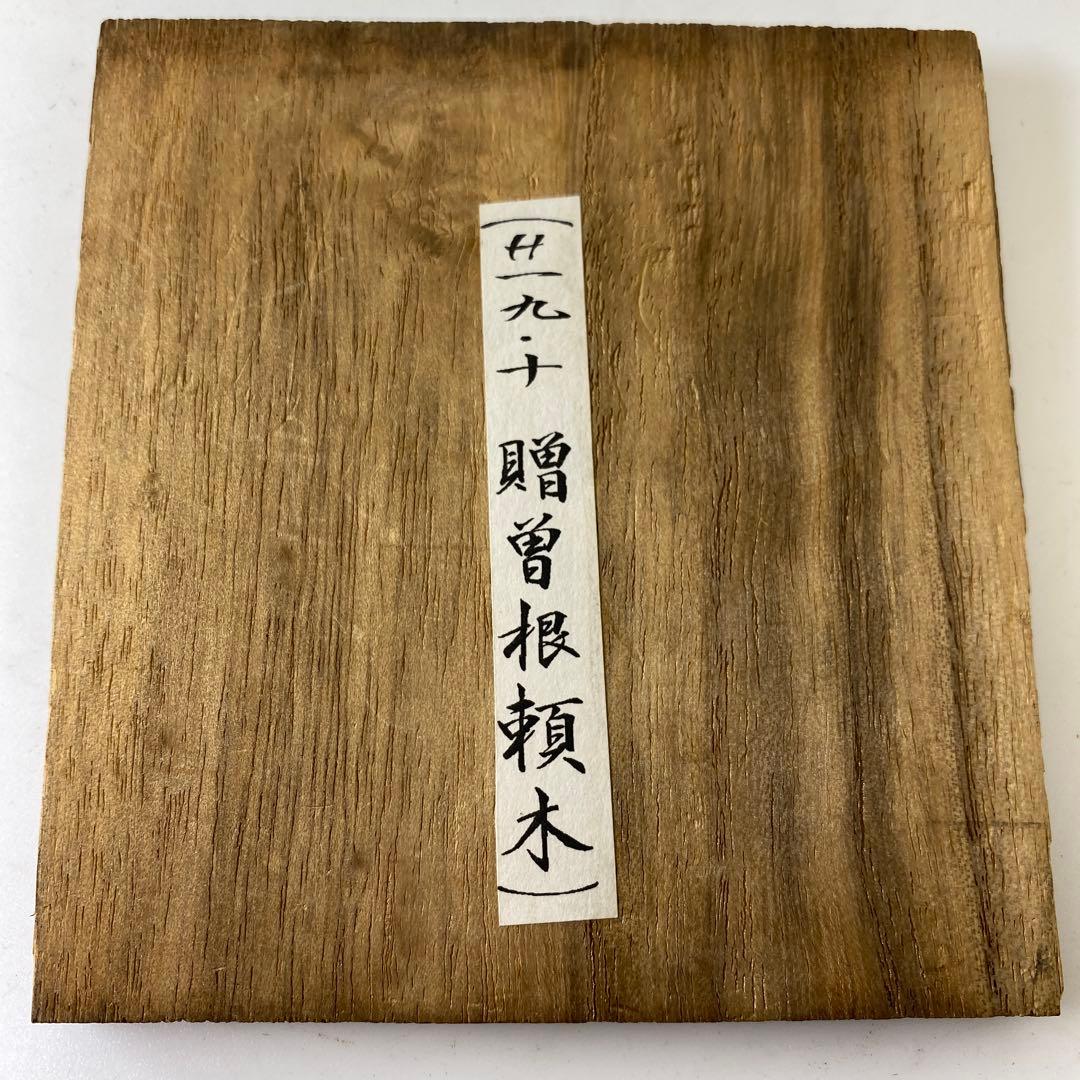 (廿一九・十 贈曽根頼木)